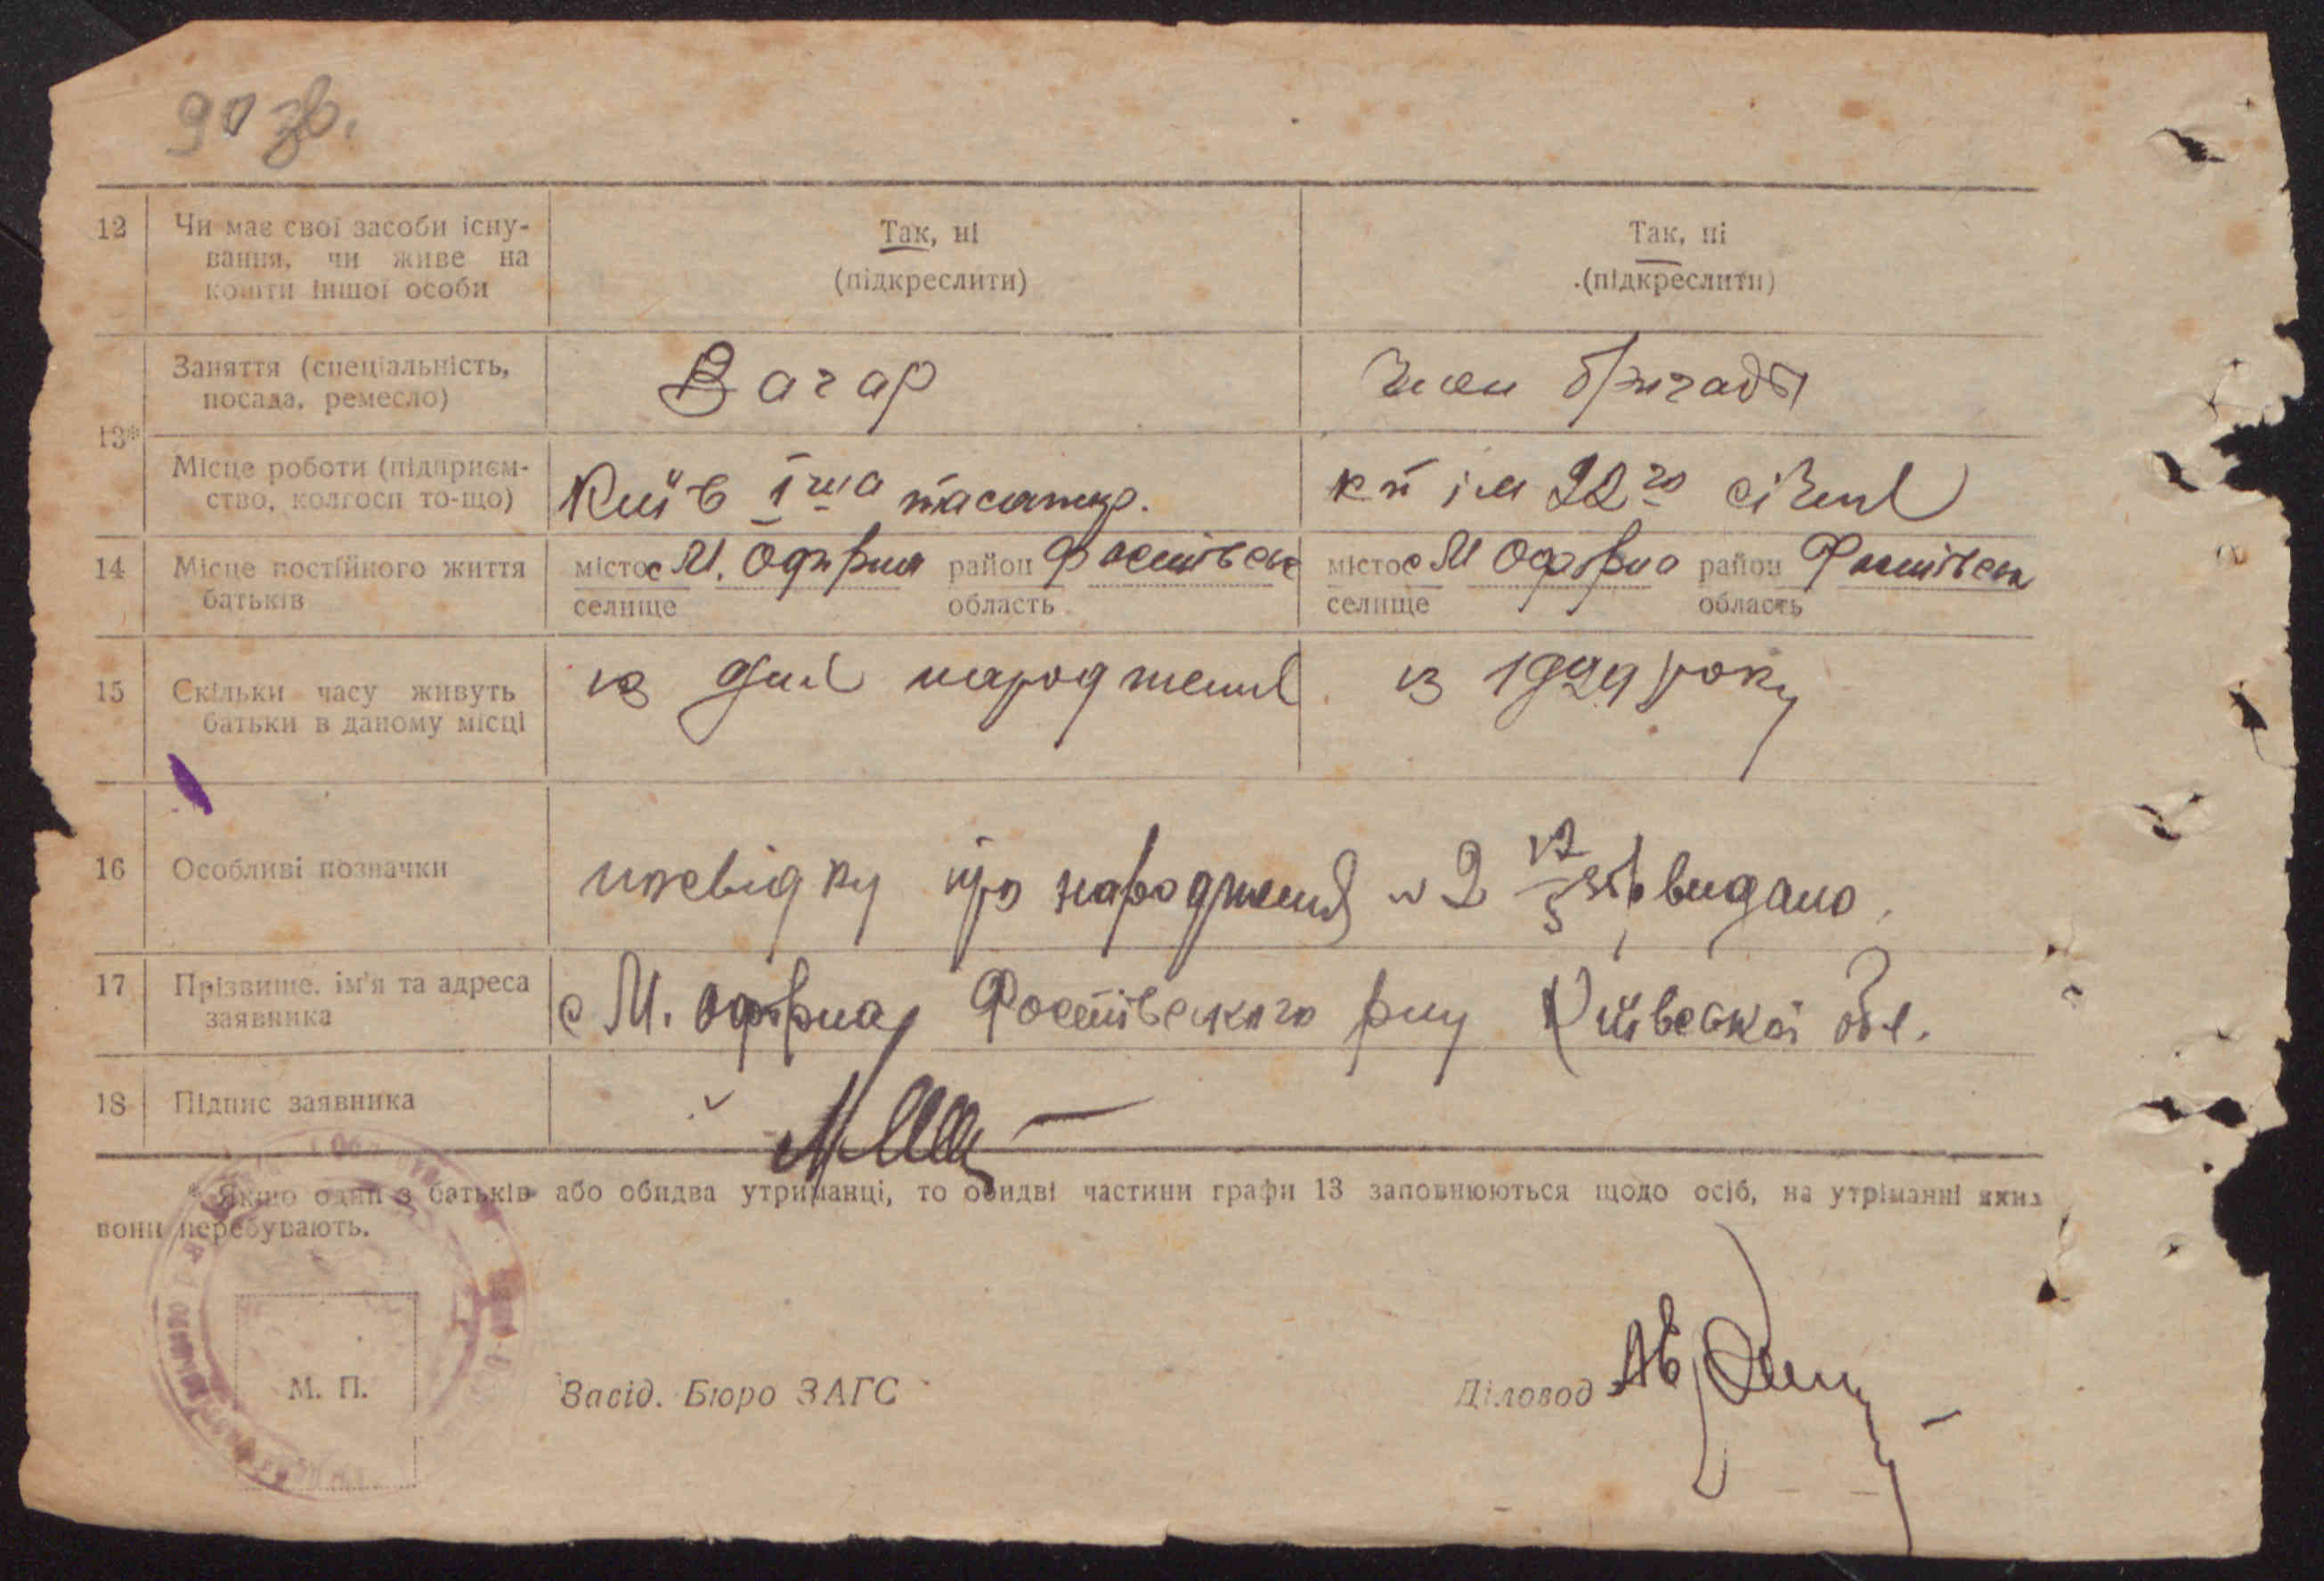 90 зв.
12 Чи має свої засоби існу-
вання, чи живе на
кошти іншої особи
Так, ні
(підкреслити)
Так, ні
(підкреслити)
13*
Заняття (спеціальність,
посада, ремесло)
Вагар
Член бригади
Місце роботи (підприєм-
ство, колгосп то-що)
Київ 1ша
кп ім 22го січня
14 Місце постійного життя
батьків
місто с М. Офірна район Фастівськ
селище область
місто с М Офірна район Фастівськ
селище область
15 Скільки часу живуть
батьки в даному місці
із дня народження
із 1929 року
16 Особливі позначки
про народження № 2 видано
17 Прізвище, ім'я та адреса
заявника
с М. Офірна Фастівського рну Київської обл.
18 Підпис заявника
* Якщо один з батьків або обидва утриманці, то обидві частини графи 13 заповнюються щодо осіб, на утріманні яких
вони перебувають.
М. П.
Засід. Бюро ЗАГС
Діловод